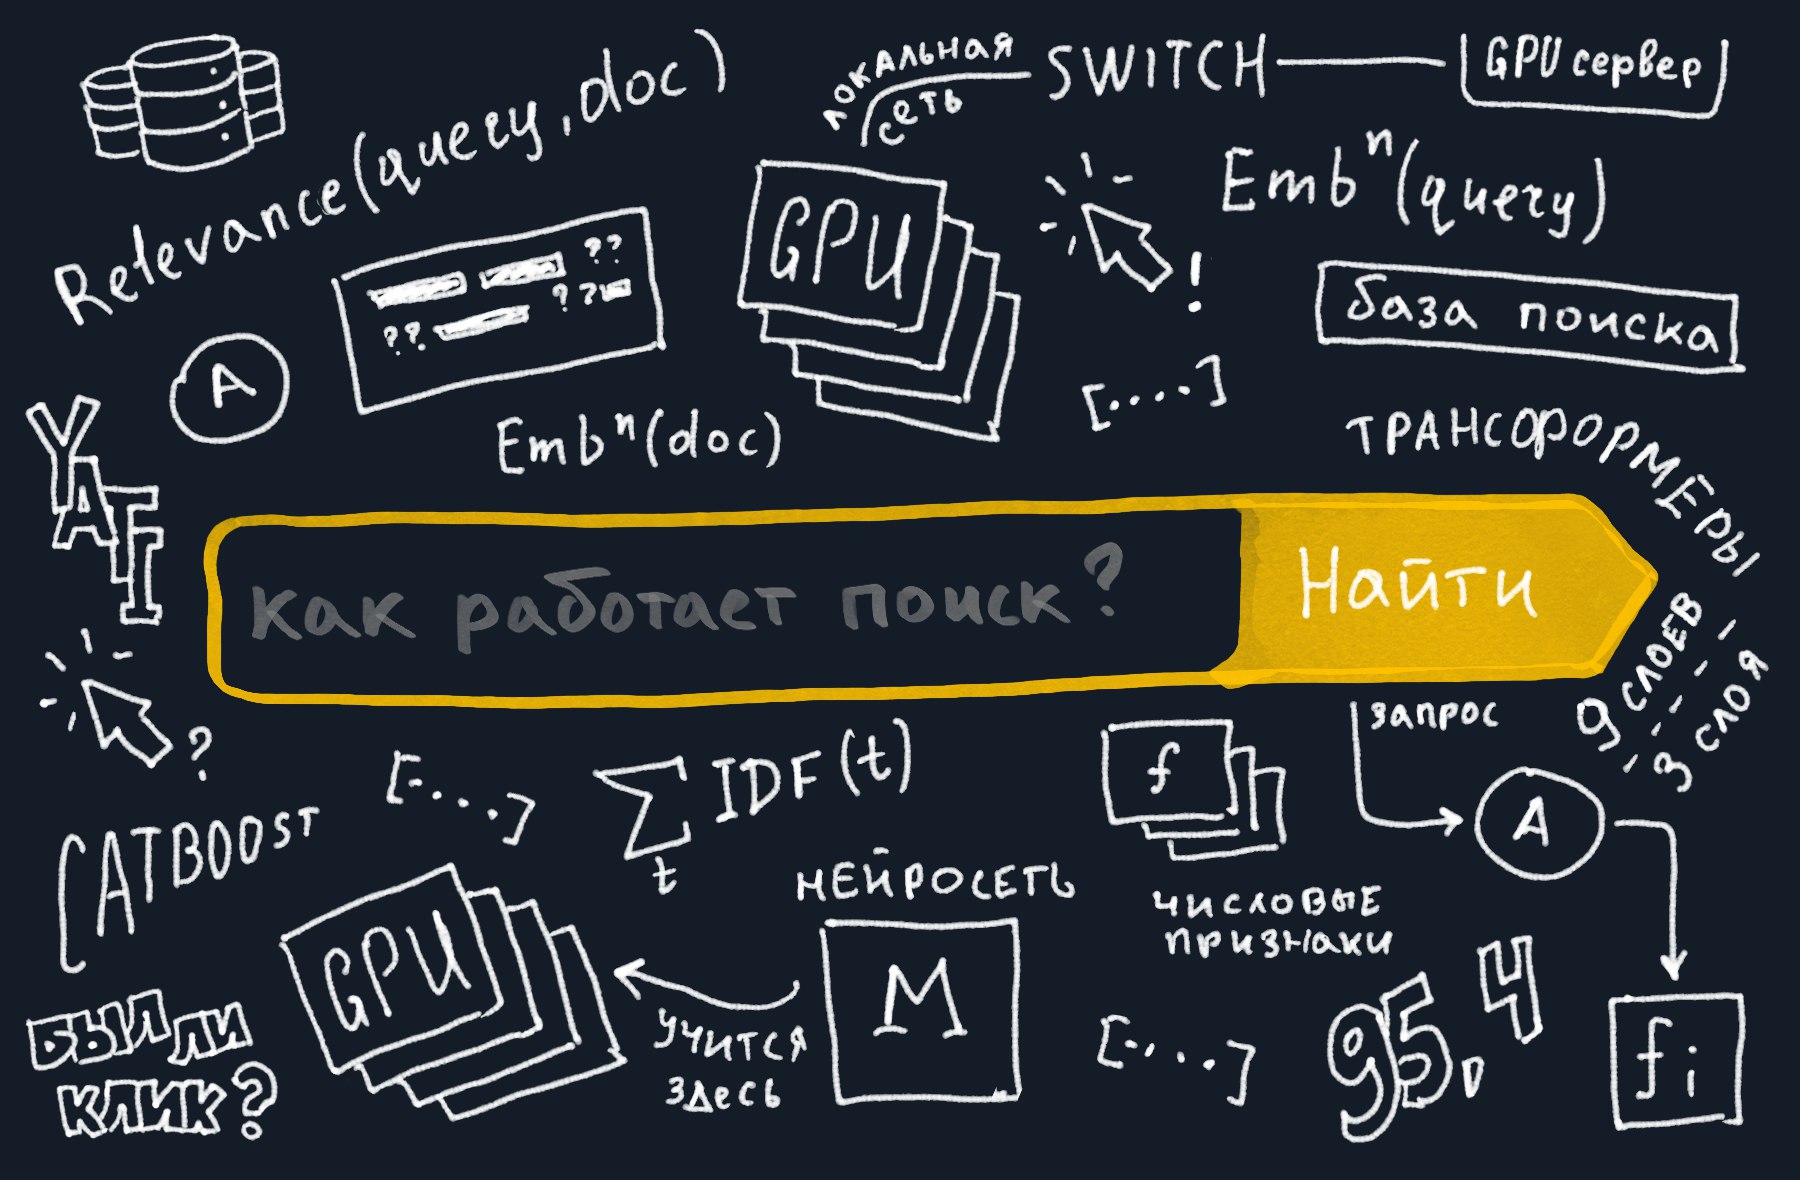 Relevance(query, doc)
локальная
сеть
SWITCH
GPU сервер
GPU
Embⁿ(query)
!
база поиска
?? 
??
??
A
[....]
YATI
Embⁿ(doc)
ТРАНСФОРМЕРЫ
9 СЛОЕВ
3 СЛОЯ
как работает поиск?
Найти
?
[....]
∑ IDF(t)
t
f
запрос
A
CATBOOST
НЕЙРОСЕТЬ
ЧИСЛОВЫЕ
ПРИЗНАКИ
GPU
M
УЧИТСЯ
ЗДЕСЬ
[....]
95,4
fi
БЫЛ ЛИ
КЛИК?